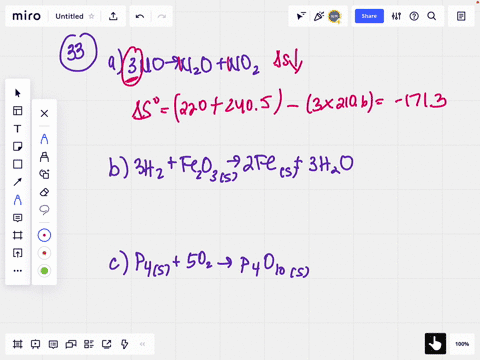 miro
Untitled
Share
33
a) 3NO → N₂O + NO₂ ΔS↓
ΔS° = (220 + 240.5) − (3 × 210.6) = −171.3
b) 3H₂ + Fe₂O₃(s) → 2Fe(s) + 3H₂O
c) P₄(s) + 5O₂ → P₄O₁₀(s)
100%